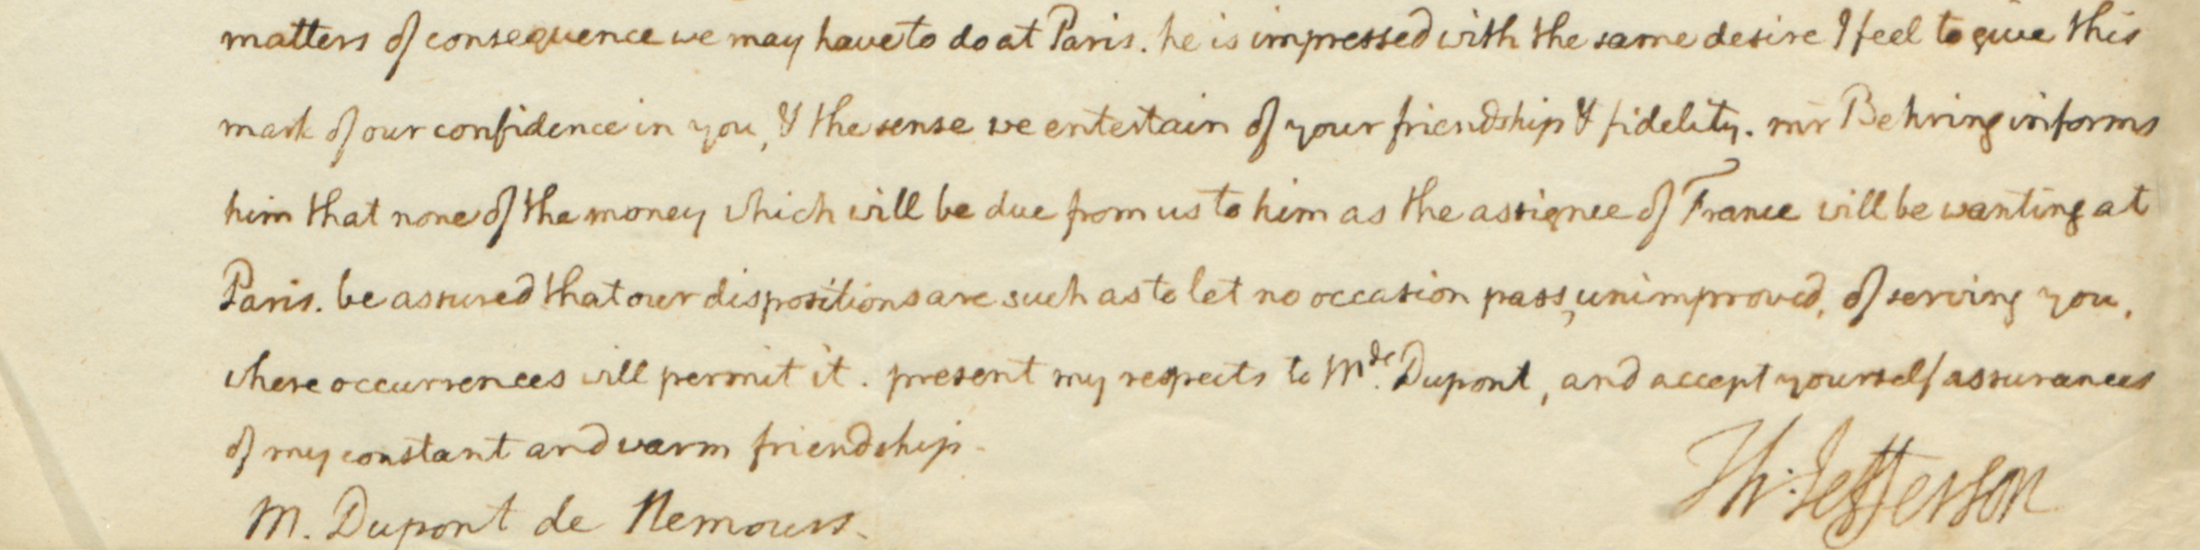 matters of consequence we may have to do at Paris. he is impressed with the same desire I feel to give this
mark of our confidence in you, & the sense we entertain of your friendship & fidelity. mr Behring informs
him that none of the money which will be due from us to him as the assignee of France will be wanting at
Paris. be assured that our dispositions are such as to let no occasion pass, unimproved, of serving you,
where occurrences will permit it. present my respects to Mde. Dupont, and accept yourself assurances
of my constant and warm friendship.
Th: Jefferson
M. Dupont de Nemours.